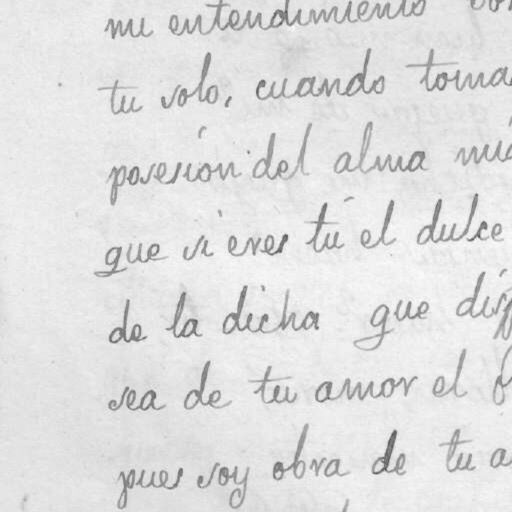 mi entendimiento
tu solo, cuando
posesión del alma
que si eres tú el dulce
de la dicha que
sea de tu amor el
pues soy obra de tu